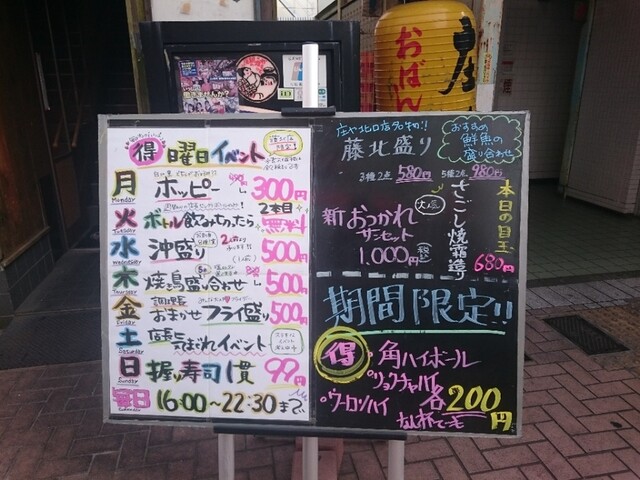 得 曜日イベント
月 Monday ホッピー 300円
火 Tuesday ボトル飲みきったら 2本目 無料
水 Wednesday 沖盛り 2人前より (1人前) 500円
木 Thursday 焼鳥盛り合わせ 500円
金 Friday 調理長 おまかせフライ盛り 500円
土 Saturday 店長 気まぐれイベント
日 Sunday 握り寿司1貫 99円
毎日 16:00〜22:30まで
庄や北口店名物!!
藤北盛り
3種2点 580円 5種2点 980円
おすすめ
鮮魚の
盛り合わせ
本日の目玉
さごし焼霜造り
680円
大人気
新 おつかれ
サンセット
1,000円 税込
期間限定!!
得 ・角ハイボール
・リョクチャハイ
・ウーロンハイ 各200円
なん杯でーも
庄
おばん